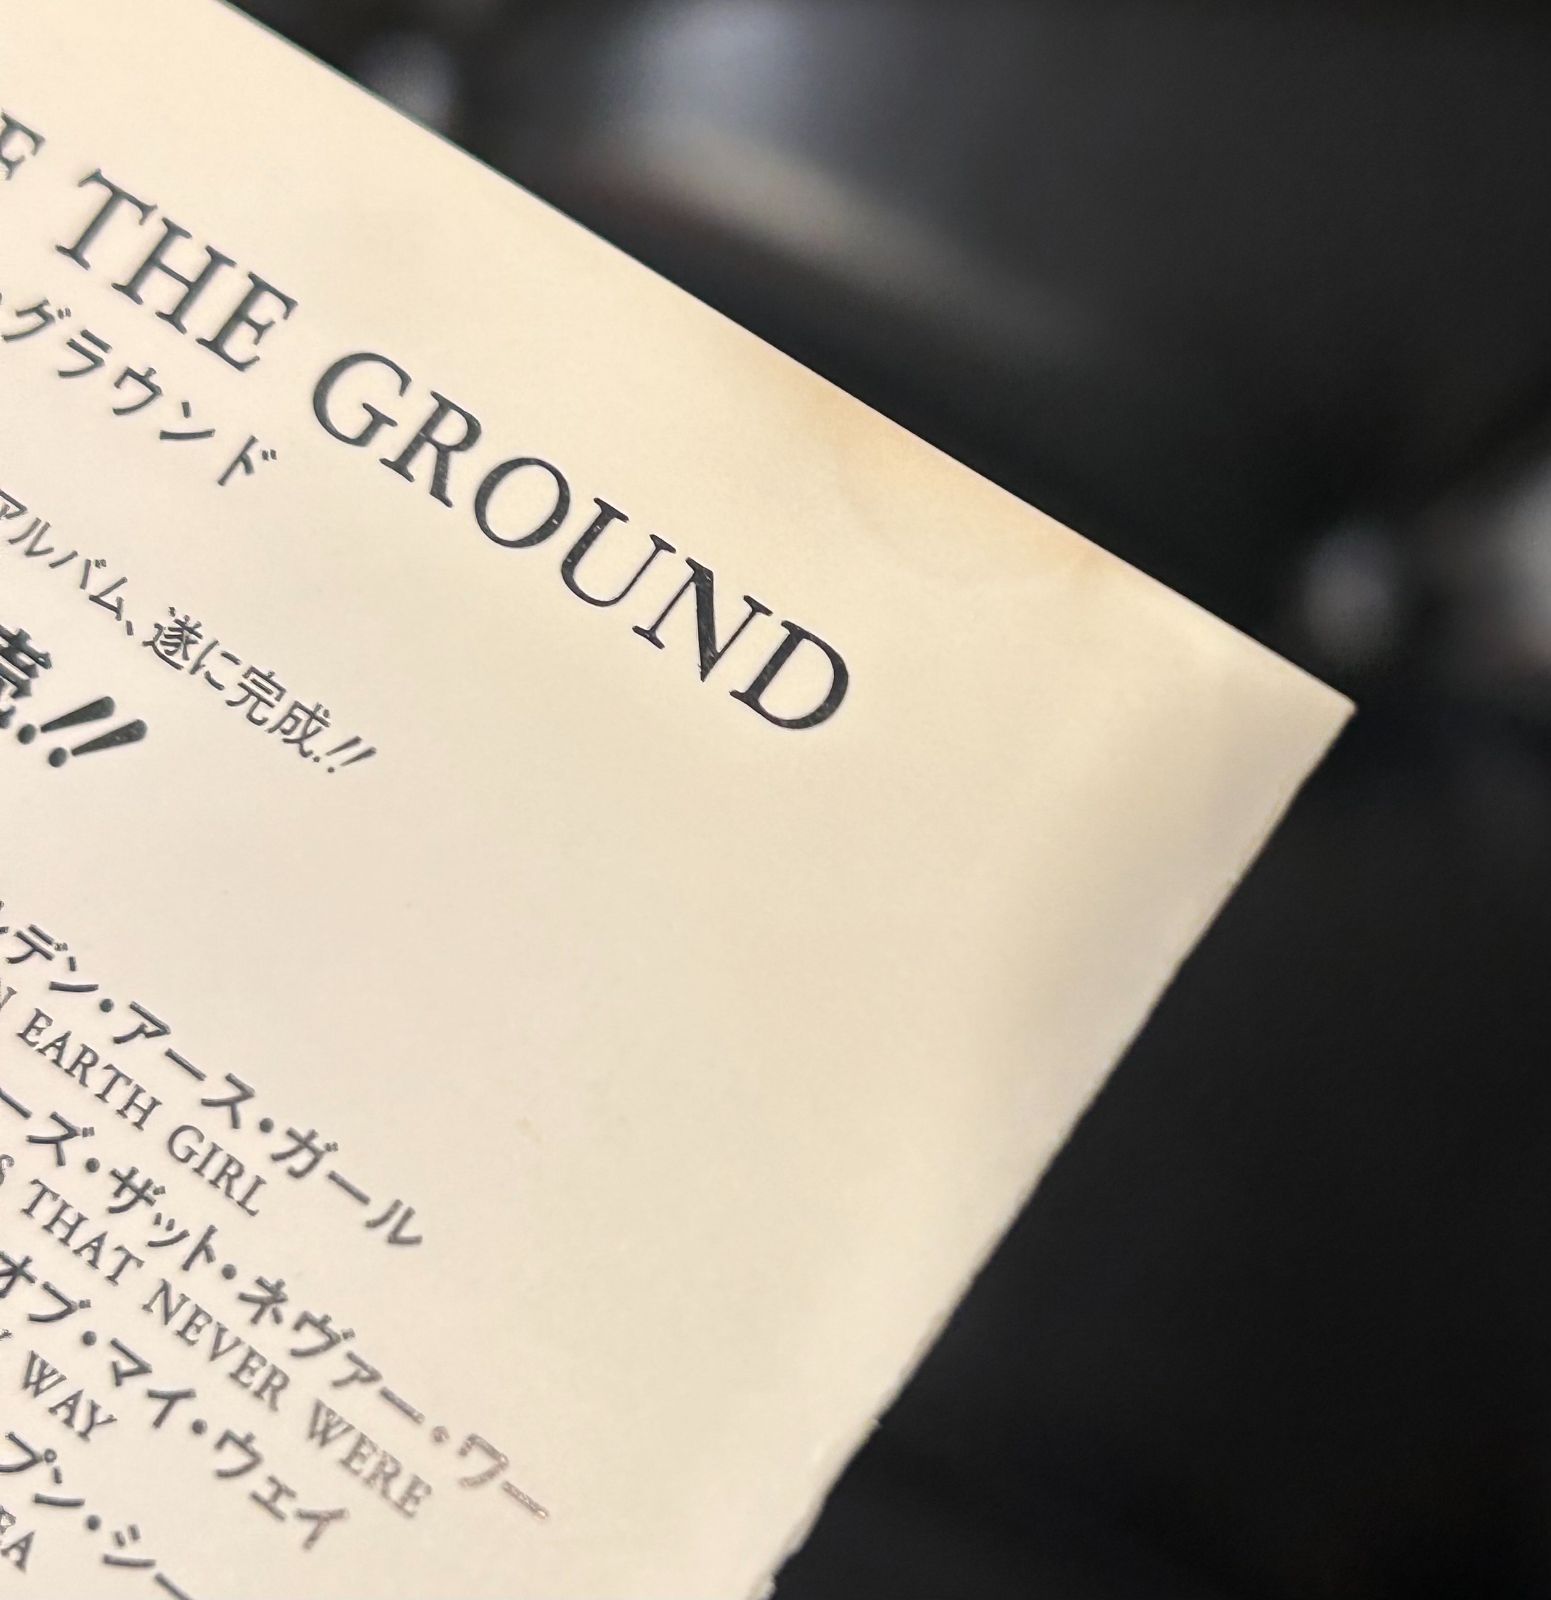 THE GROUND
グラウンド
アルバム、遂に完成!!
!!
デン・アース・ガール
EARTH GIRL
ーズ・ザット・ネヴァー・ワー
S THAT NEVER WERE
オブ・マイ・ウェイ
WAY
プン・シー
EA